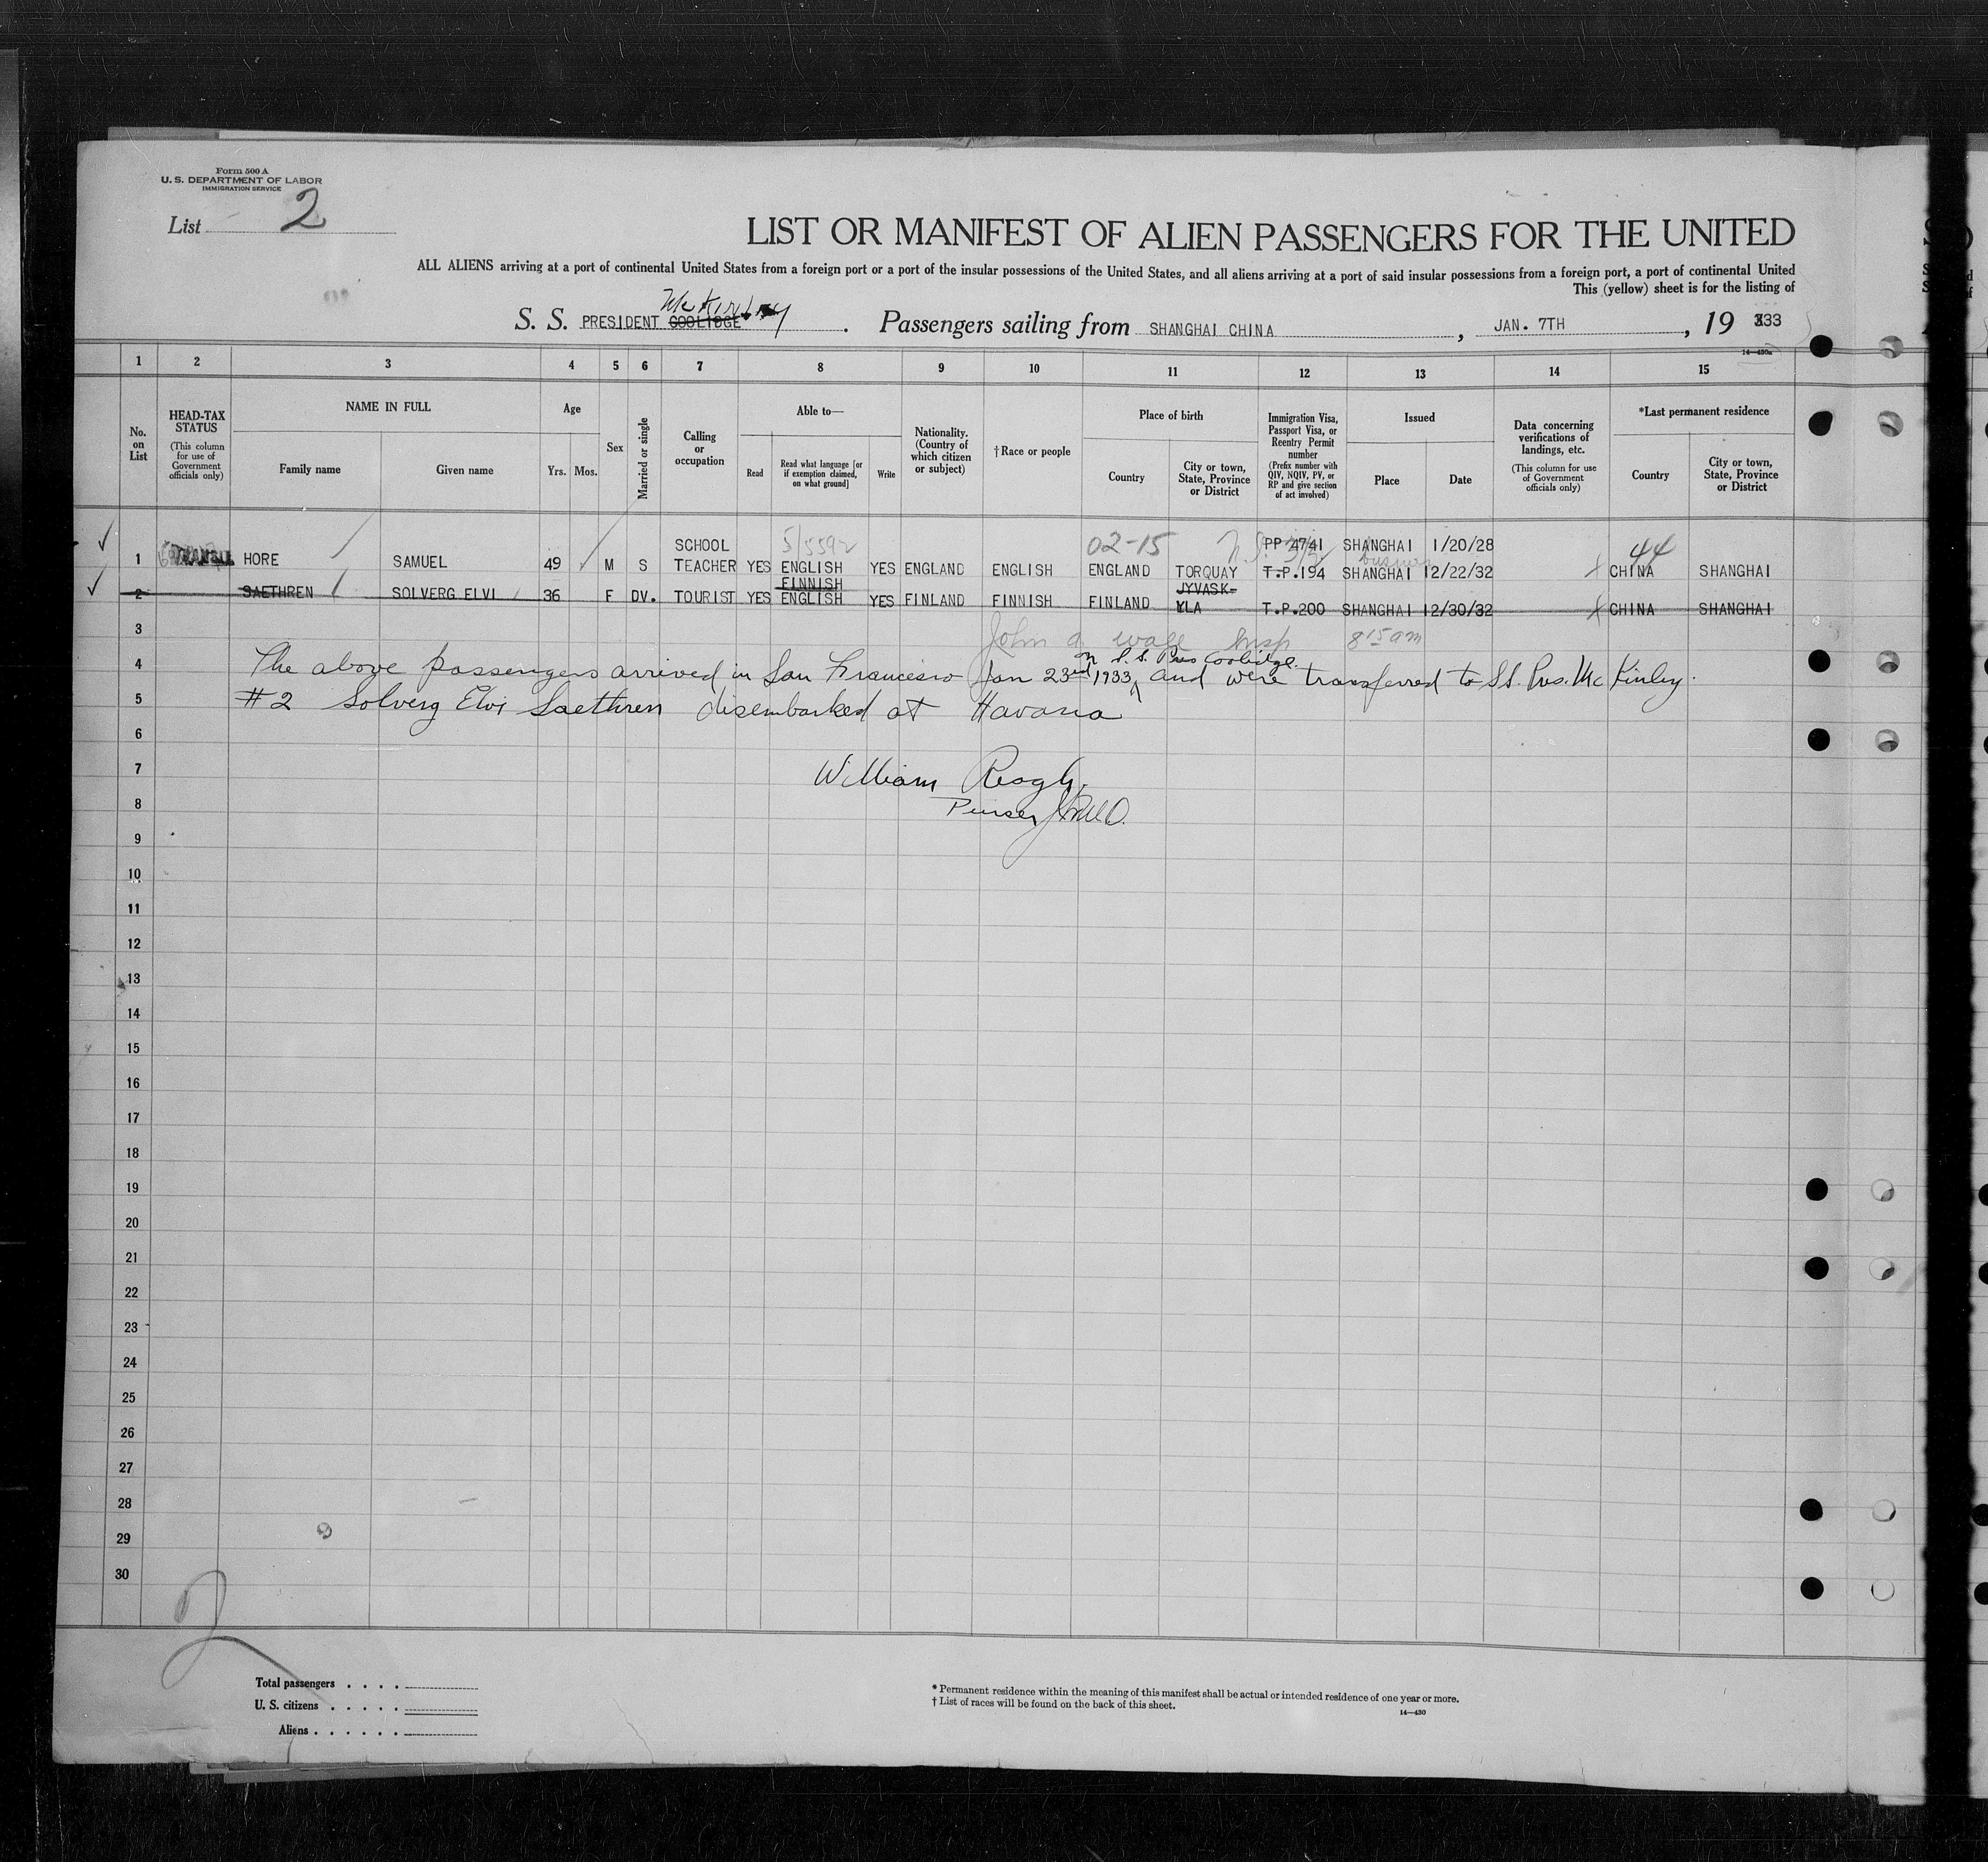 Form 500 A
U. S. DEPARTMENT OF LABOR
IMMIGRATION SERVICE
List 2
LIST OR MANIFEST OF ALIEN PASSENGERS FOR THE UNITED
ALL ALIENS arriving at a port of continental United States from a foreign port or a port of the insular possessions of the United States, and all aliens arriving at a port of said insular possessions from a foreign port, a port of continental United
This (yellow) sheet is for the listing of
McKinley
S. S. PRESIDENT COOLIDGE. Passengers sailing from SHANGHAI CHINA, JAN. 7TH, 19 333
14—430a
1 2 3 4 5 6 7 8 9 10 11 12 13 14 15
No. on List
HEAD-TAX STATUS
(This column for use of Government officials only)
NAME IN FULL
Family name
Given name
Age
Yrs. Mos.
Sex
Married or single
Calling or occupation
Able to—
Read
Read what language [or if exemption claimed, on what ground]
Write
Nationality. (Country of which citizen or subject)
†Race or people
Place of birth
Country
City or town, State, Province or District
Immigration Visa, Passport Visa, or Reentry Permit number
(Prefix number with QIV, NQIV, PV, or RP and give section of act involved)
Issued
Place
Date
Data concerning verifications of landings, etc.
(This column for use of Government officials only)
*Last permanent residence
Country
City or town, State, Province or District
SCHOOL 5/5592 02-15 PP 4741 SHANGHAI 1/20/28 44
1 HORE SAMUEL 49 M S TEACHER YES ENGLISH YES ENGLAND ENGLISH ENGLAND TORQUAY T.P.194 SHANGHAI 12/22/32 CHINA SHANGHAI
FINNISH JYVASK-
2 SAETHREN SOLVERG ELVI 36 F DV. TOURIST YES ENGLISH YES FINLAND FINNISH FINLAND YLA T.P.200 SHANGHAI 12/30/32 CHINA SHANGHAI
3 John a wage Insp 8 15 am
on S.S. Pres Coolidge
4 The above passengers arrived in San Francisco Jan 23rd 1933 and were transferred to SS. Pres. Mc Kinley.
5 #2 Solverg Elvi Saethren disembarked at Havana
6
7 William Reogh.
8 Purser
9
10
11
12
13
14
15
16
17
18
19
20
21
22
23
24
25
26
27
28
29
30
2
Total passengers . . . .
U. S. citizens . . . . .
Aliens . . . . . .
* Permanent residence within the meaning of this manifest shall be actual or intended residence of one year or more.
† List of races will be found on the back of this sheet.
14—430